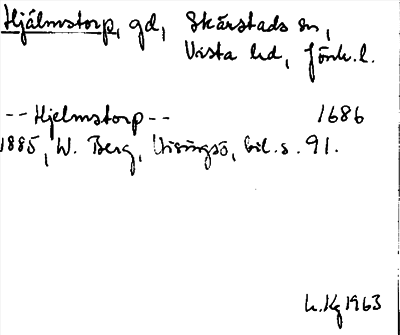 Hjälmstorp, gd, Skärstads sn,
Vista hd, Jönk. l.
-- Hjelmstorp -- 1686
1885, W. Berg, Visingsö, bil. s. 91.
L. Kg 1963